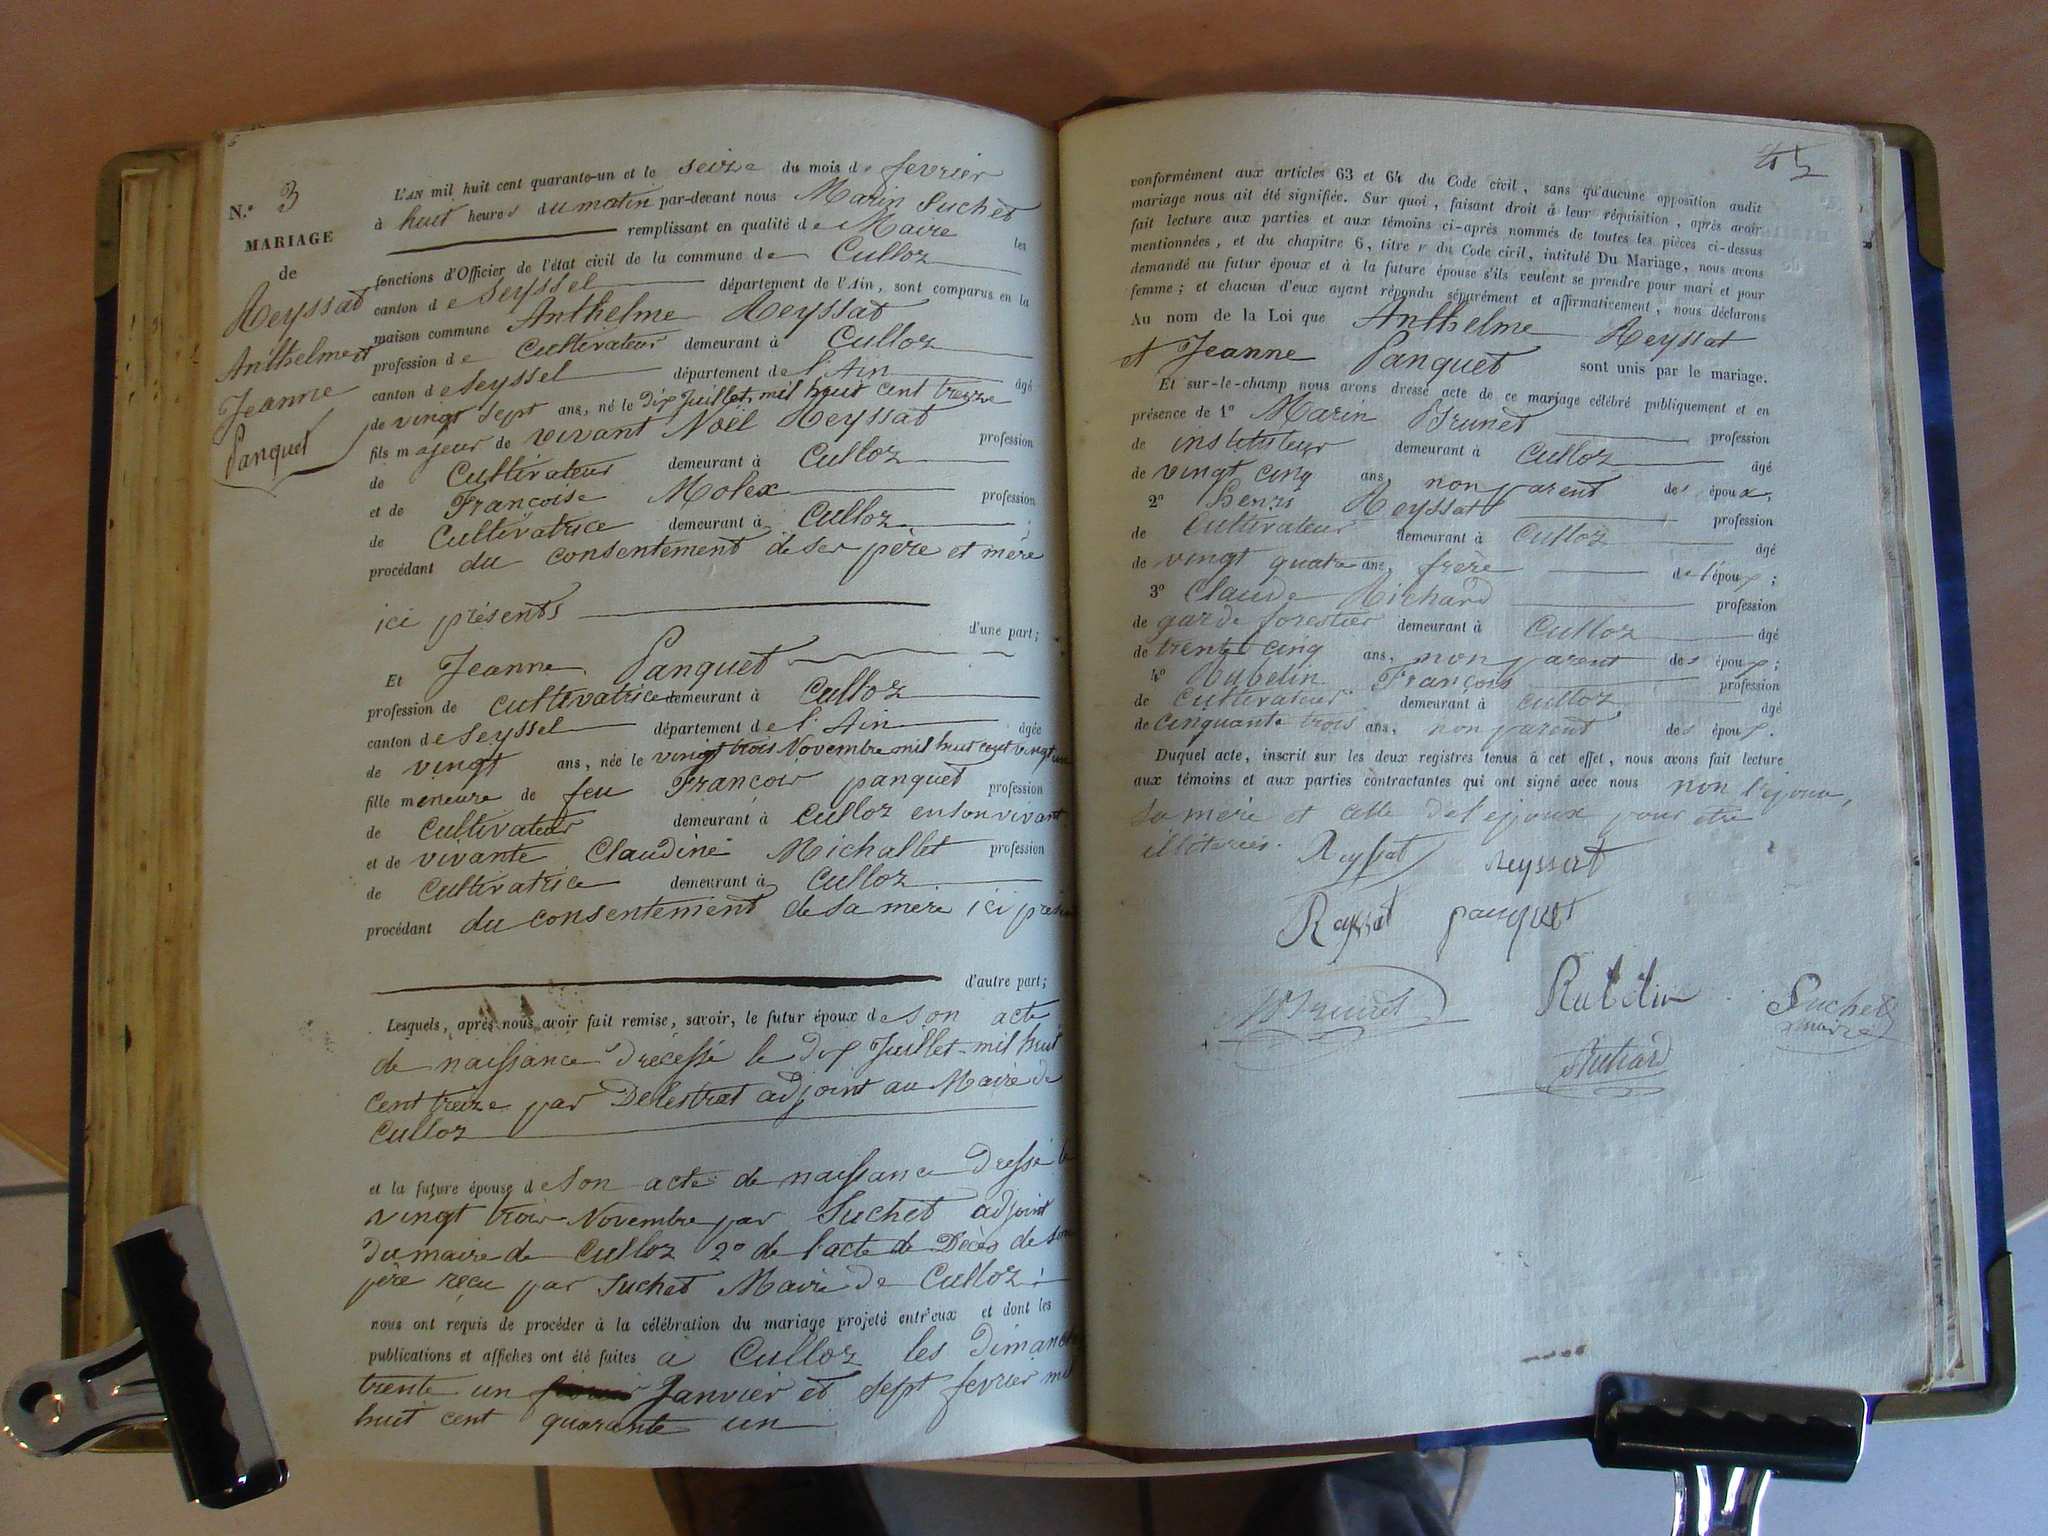 N.º 3
MARIAGE
de
Reyssat
Anthelme et
Jeanne
Panquet
L'AN mil huit cent quarante-un et le seize du mois de fevrier
à huit heures du matin par-devant nous Marin Suchet
remplissant en qualité de Maire les
fonctions d'Officier de l'état civil de la commune de Culloz
canton de Seyssel département de l'Ain, sont comparus en la
maison commune Anthelme Reyssat
profession de Cultivateur demeurant à Culloz
canton de Seyssel département de l'Ain âgé
de vingt sept ans, né le dix Juillet mil huit cent treize
fils majeur de vivant Noël Reyssat profession
de Cultivateur demeurant à Culloz
et de Françoise Molex profession
de Cultivatrice demeurant à Culloz ;
procédant du consentement de ses père et mère
ici présents
d'une part;
Et Jeanne Panquet
profession de cultivatrice demeurant à Culloz
canton de Seyssel département de l'Ain âgée
de vingt ans, née le vingt trois Novembre mil huit cent vingt
fille meneure de feu François panquet profession
de Cultivateur demeurant à Culloz en son vivant
et de vivante Claudine Michallet profession
de Cultivatrice demeurant à Culloz
procédant du consentement de sa mère ici
d'autre part;
Lesquels, après nous avoir fait remise, savoir, le futur époux de son acte
de naissance le dix Juillet mil huit
cent treize par Delestrat adjoint au Maire de
Culloz
et la future épouse de son acte de naissance dressé le
vingt trois Novembre par Suchet adjoint
du maire de Culloz 2º de l'acte de Décès de son
père recu par Suchet Maire de Culloz
nous ont requis de procéder à la célébration du mariage projeté entr'eux et dont les
publications et affiches ont été faites à Culloz les Dimanche
trente un Janvier et sept fevrier mil
huit cent quarante un
45
conformément aux articles 63 et 64 du Code civil, sans qu'aucune opposition audit
mariage nous ait été signifiée. Sur quoi, faisant droit à leur réquisition, après avoir
fait lecture aux parties et aux témoins ci-après nommés de toutes les pièces ci-dessus
mentionnées, et du chapitre 6, titre v du Code civil, intitulé Du Mariage, nous avons
demandé au futur époux et à la future épouse s'ils veulent se prendre pour mari et pour
femme; et chacun d'eux ayant répondu séparément et affirmativement, nous déclarons
Au nom de la Loi que Anthelme Reyssat
et Jeanne Panquet sont unis par le mariage.
Et sur-le-champ nous avons dressé acte de ce mariage célébré publiquement et en
présence de 1º Marin Brunet profession
de instituteur demeurant à Culloz âgé
de vingt cinq ans, non parent des époux,
2º Henri Reyssat profession
de Cultivateur demeurant à Culloz âgé
de vingt quatre ans, frère de l'époux;
3º Claude Richard profession
de garde forestier demeurant à Culloz âgé
de trente cinq ans, non parent des époux;
4º Rubelin François profession
de Cultivateur demeurant à Culloz âgé
de cinquante trois ans, non parent des époux.
Duquel acte, inscrit sur les deux registres tenus à cet effet, nous avons fait lecture
aux témoins et aux parties contractantes qui ont signé avec nous non l'épouse,
sa mère et celle de l'époux pour etre
Reyssat reyssat
Reyssat panquet
Brunet Rubelin Suchet
maire